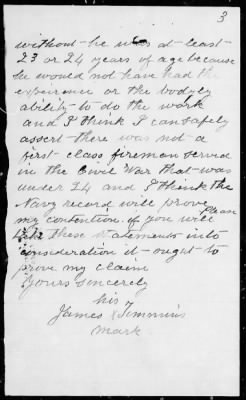 3
without he was at least
23 or 24 years of age because
he would not have had the
experence or the bodyly
ability to do the work
and I think I can safely
assert there was not a
first class firemen served
in the Civil War that was
under 24 and I think the
Navy record will prove
my contention if you will Please
take these statements into
consideration it ought to
prove my claim
Yours sincerely
his
James X Timmins
mark